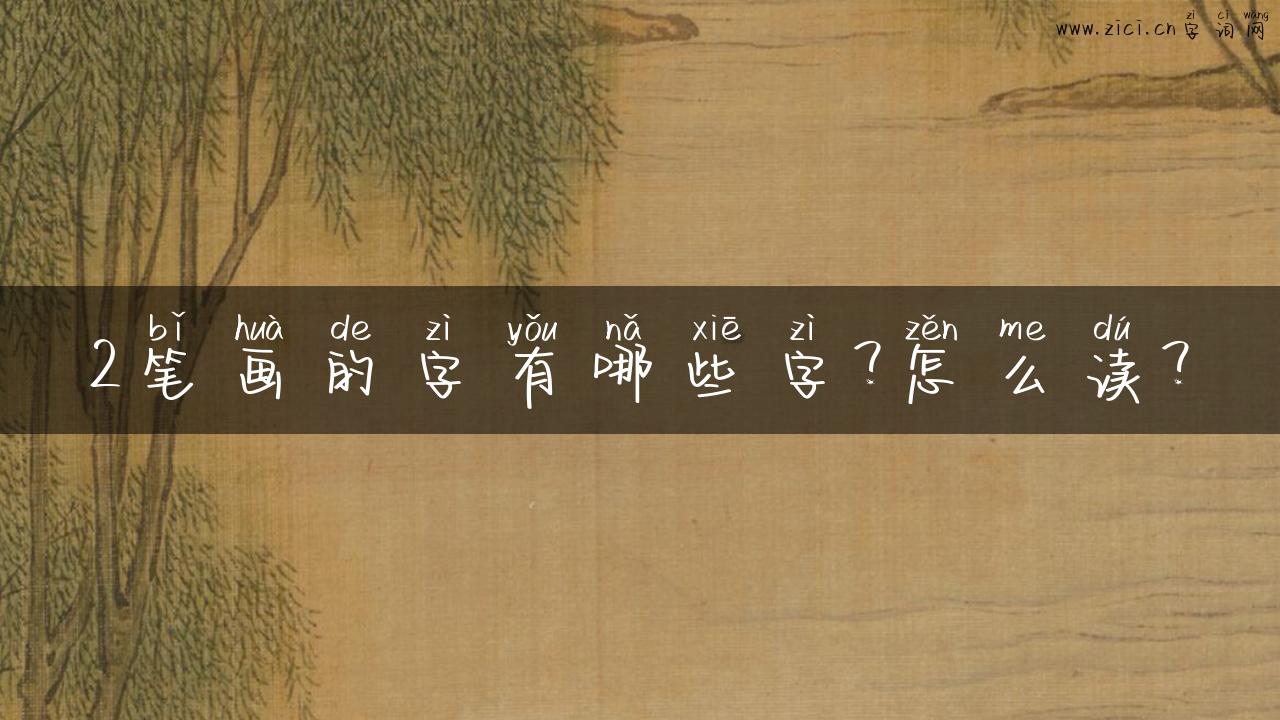 zì cí wǎng
www.zici.cn字词网
bǐ huà de zì yǒu nǎ xiē zì zěn me dú
2笔画的字有哪些字?怎么读?